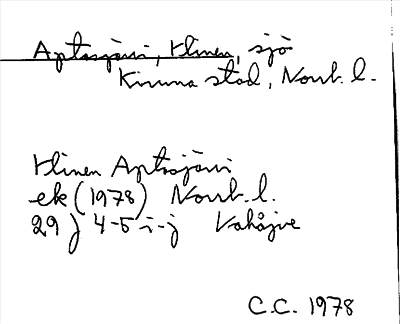 Aptasjärvi, Hinen, sjö
Kiruna stad, Norrb. l.
Hinen Aptasjärvi
ek (1978) Norrb. l.
29J 4-5 i-j Vakåjve
C.C. 1978